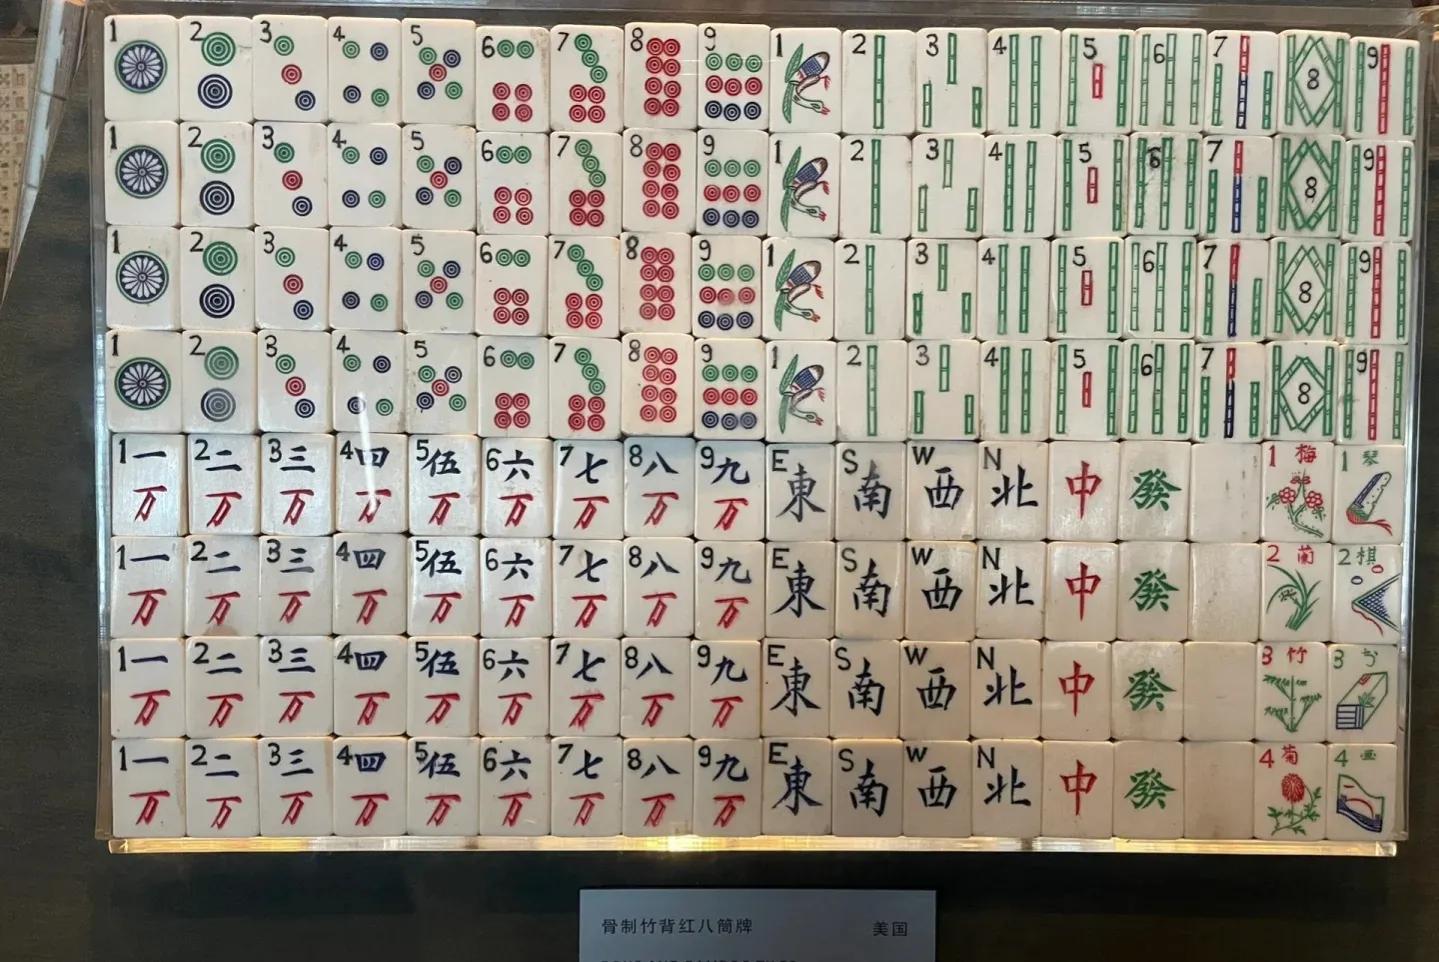 1 2 3 4 5 6 7 8 9 1 2 3 4 5 6 7 8 9
1 2 3 4 5 6 7 8 9 1 2 3 4 5 6 7 8 9
1 2 3 4 5 6 7 8 9 1 2 3 4 5 6 7 8 9
1 2 3 4 5 6 7 8 9 1 2 3 4 5 6 7 8 9
1一 2二 3三 4四 5伍 6六 7七 8八 9九 E S W N 1 梅 1 琴
万 万 万 万 万 万 万 万 万 東 南 西 北 中 發
1一 2二 3三 4四 5伍 6六 7七 8八 9九 E S W N 2 蘭 2 棋
万 万 万 万 万 万 万 万 万 東 南 西 北 中 發
1一 2二 3三 4四 5伍 6六 7七 8八 9九 E S W N 3 竹 3
万 万 万 万 万 万 万 万 万 東 南 西 北 中 發
1一 2二 3三 4四 5伍 6六 7七 8八 9九 E S W N 4 菊 4 画
万 万 万 万 万 万 万 万 万 東 南 西 北 中 發
骨制竹背红八筒牌 美国